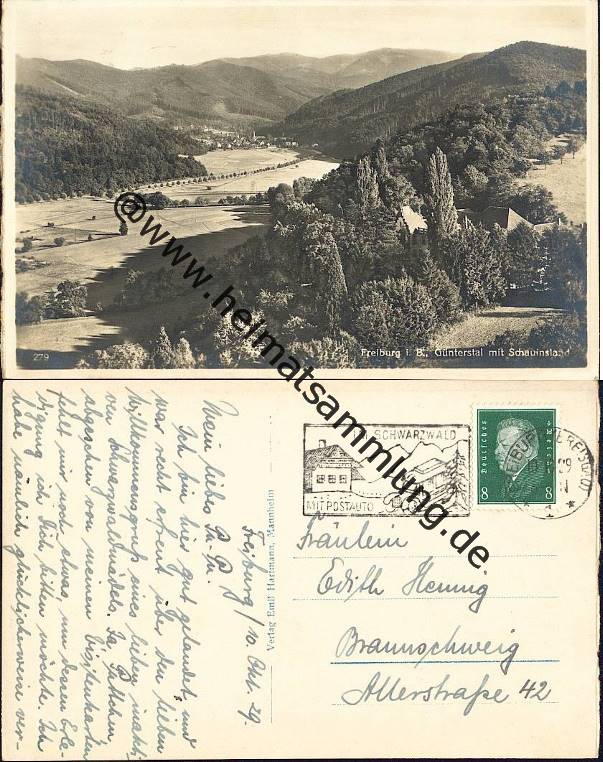 279
Freiburg i. B., Günterstal mit Schauinsland
@www.heimatsammlung.de
SCHWARZWALD
MIT POSTAUTO
Deutsches Reich
8 8
FREIBURG (BREISGAU)
Verlag Emil Hartmann, Mannheim
Freiburg/ 10. Okt. 29.
Mein liebes
Ich bin hier gut gelandet und
war recht erfreut über den lieben
Willkommensgruß eines lieben
ver
abgesehen von meinen Visitenkarten
fehlt mir noch etwas, um dessen Erle-
digung ich Dich bitten möchte. Ich
habe nämlich glücklicherweise ver-
Fräulein
Edith Hennig
Braunschweig
Allerstraße 42